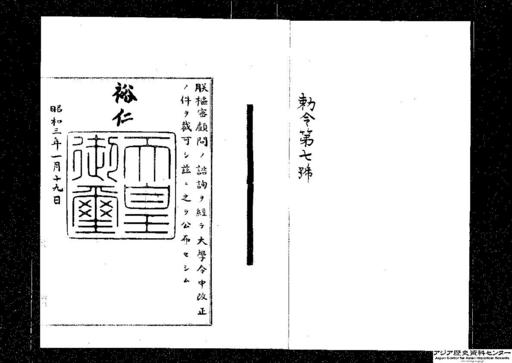 勅令第七號
朕樞密顧問ノ諮詢ヲ經テ大學令中改正
ノ件ヲ裁可シ茲ニ之ヲ公布セシム
裕仁
天皇
御璽
昭和三年一月十九日
アジア歴史資料センター
Japan Center for Asian Historical Records